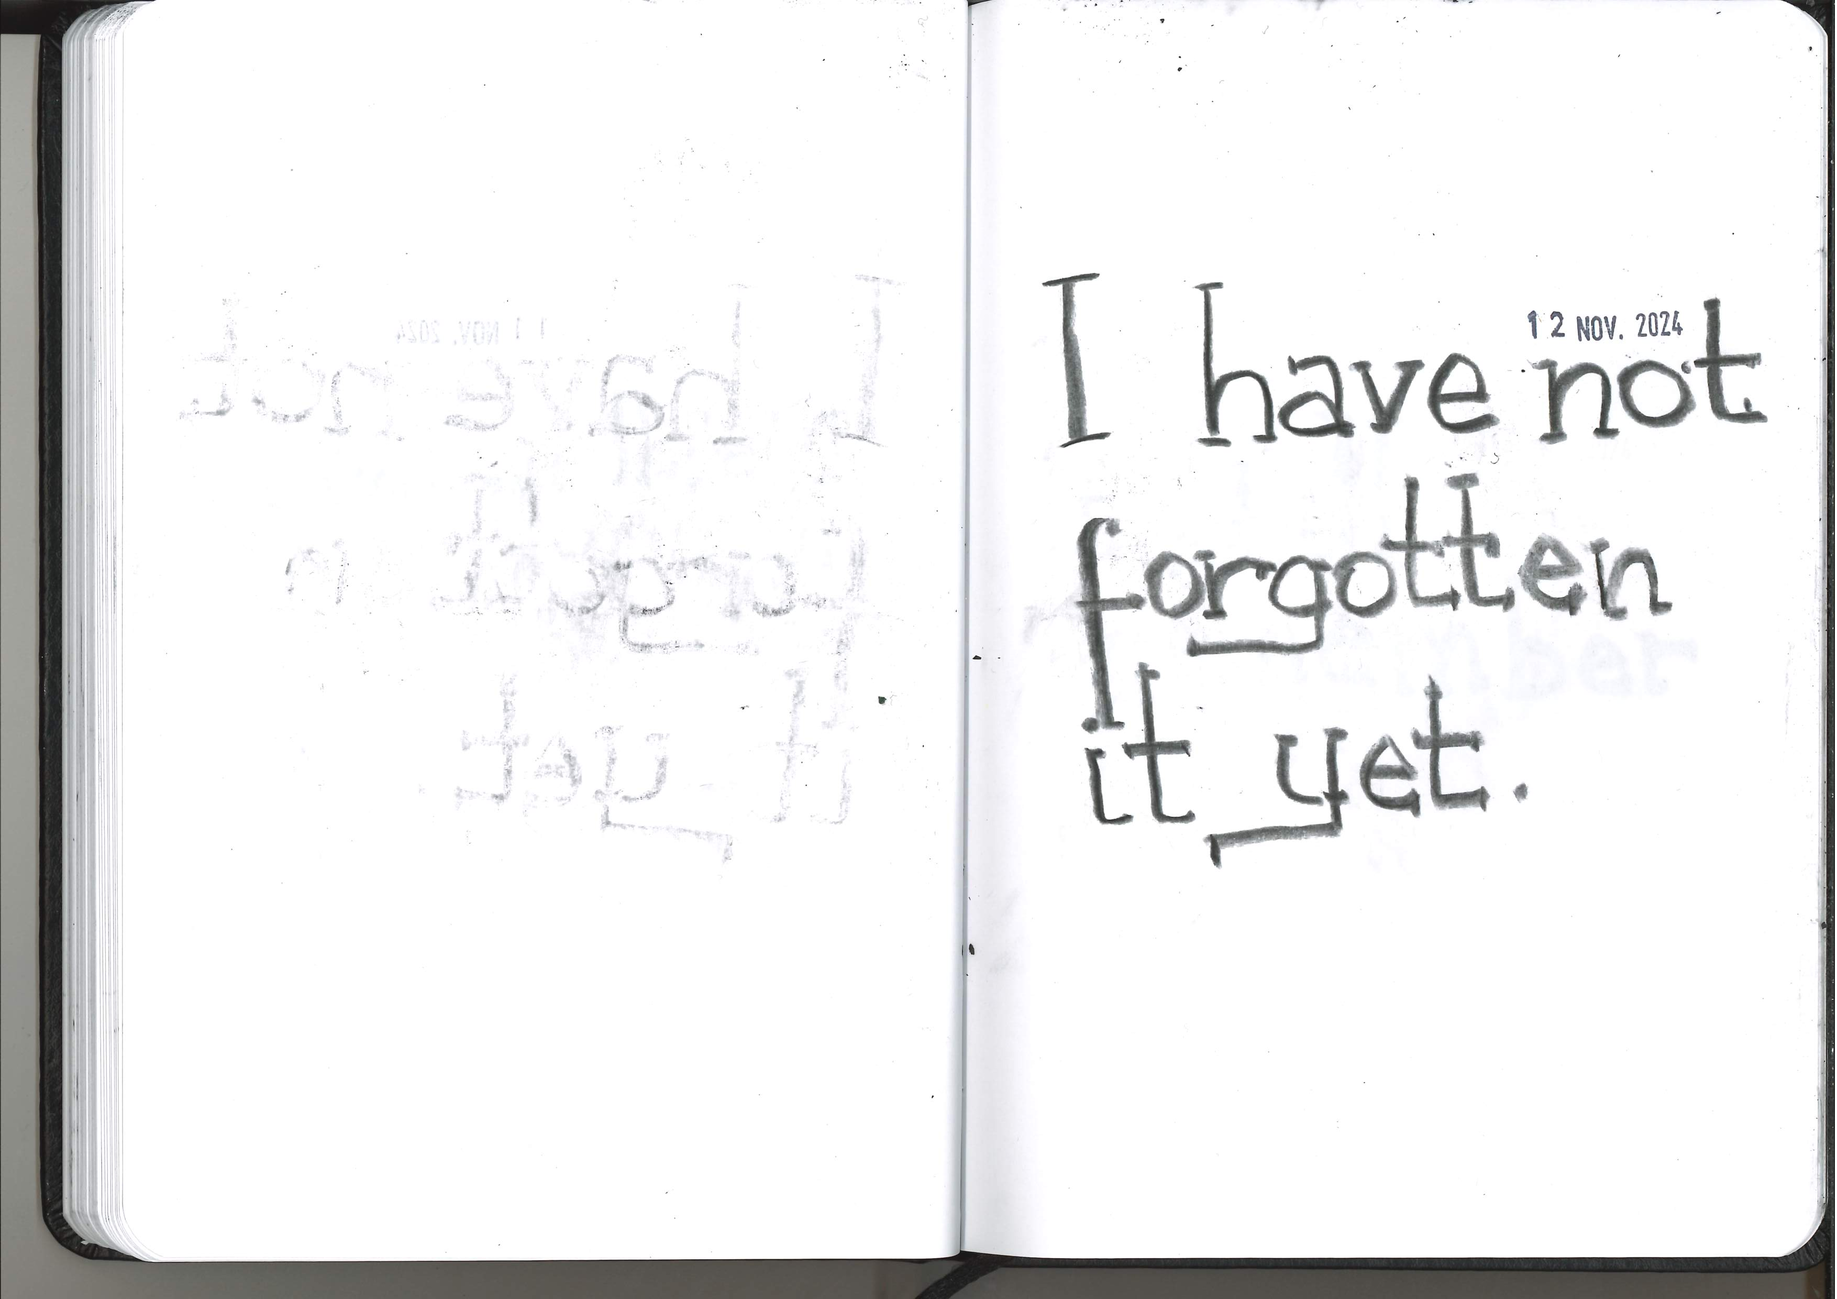 12 NOV. 2024
I have not
forgotten
it yet.